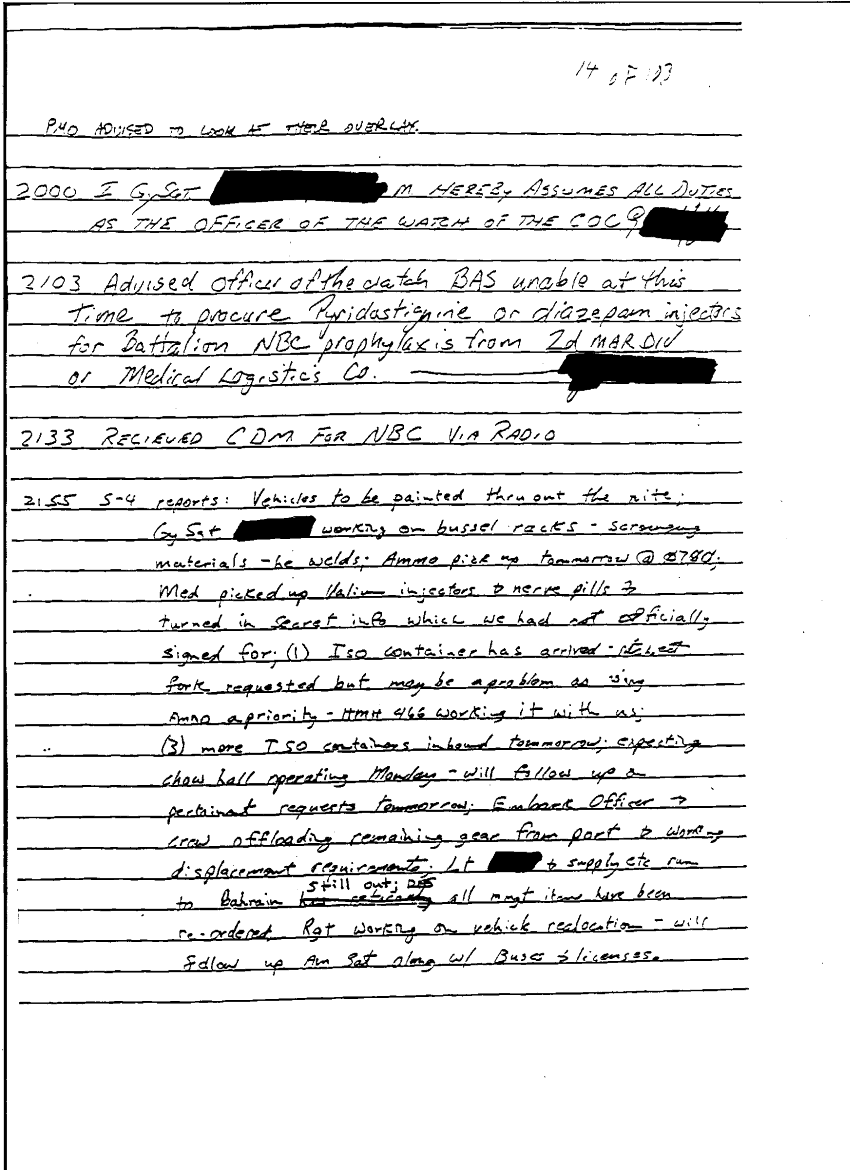 14 OF 103
PMO ADVISED TO LOOK AT THEIR OVERLAY.
2000 I GySGT M HEREBY ASSUMES ALL DUTIES
AS THE OFFICER OF THE WATCH OF THE COC
2103 Advised officer of the watch BAS unable at this
Time to procure Pyridostigmine or diazepam injectors
for Battalion NBC prophylaxis from 2d MAR DIV
or Medical Logistics Co.
2133 RECIEVED CDM FOR NBC VIA RADIO
2155 S-4 reports: Vehicles to be painted thru out the nite;
Gy Sgt working on bussel racks - scrounging
materials - he welds; Ammo pick up tommorrow @
Med picked up Valium injectors & nerve pills &
turned in Secret info which we had not officially
signed for; (1) ISO container has arrived -
fork requested but may be a problem as
Ammo a priority - HMH 466 working it with us;
(3) more ISO containers inbound tommorrow; expecting
chow hall operating Monday - will follow up on
pertinant requests tommorrow; Embark Officer →
crew offloading remaining gear from port & working
displacement requirements; Lt & supply etc run
still out;
to Bahrain all mngt items have been
re-ordered, Rgt working on vehicle reallocation - will
follow up Am Sat along w/ Buses & licenses.